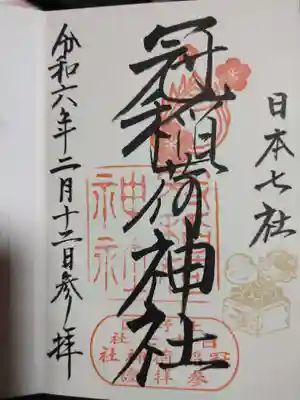 日本七社
冠稲荷神社
令和六年二月十二日参拝